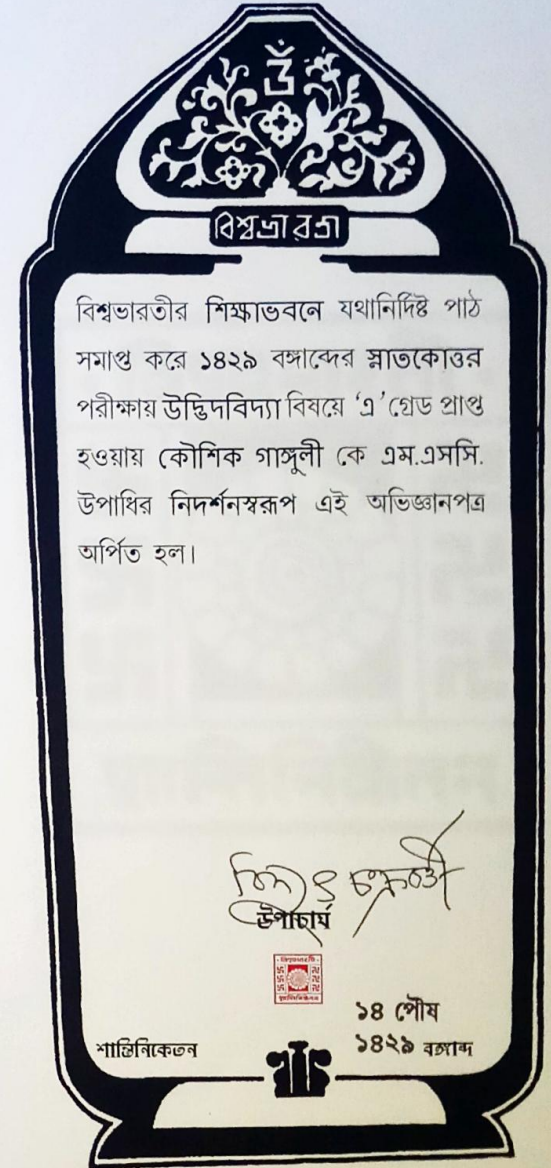 ওঁ
বিশ্বভারতী
বিশ্বভারতীর শিক্ষাভবনে যথানির্দিষ্ট পাঠ
সমাপ্ত করে ১৪২৯ বঙ্গাব্দের স্নাতকোত্তর
পরীক্ষায় উদ্ভিদবিদ্যা বিষয়ে ‘এ’ গ্রেড প্রাপ্ত
হওয়ায় কৌশিক গাঙ্গুলী কে এম.এসসি.
উপাধির নিদর্শনস্বরূপ এই অভিজ্ঞানপত্র
অর্পিত হল।
বিদ্যুৎ চক্রবর্তী
উপাচার্য
১৪ পৌষ
শান্তিনিকেতন ১৪২৯ বঙ্গাব্দ